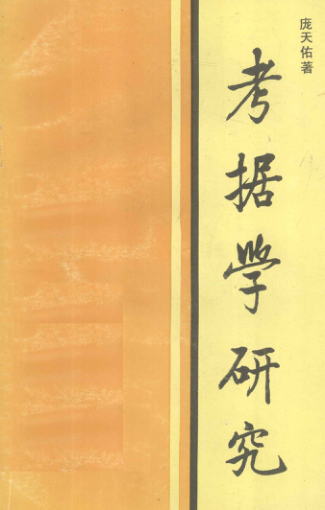 庞天佑著
考据学研究